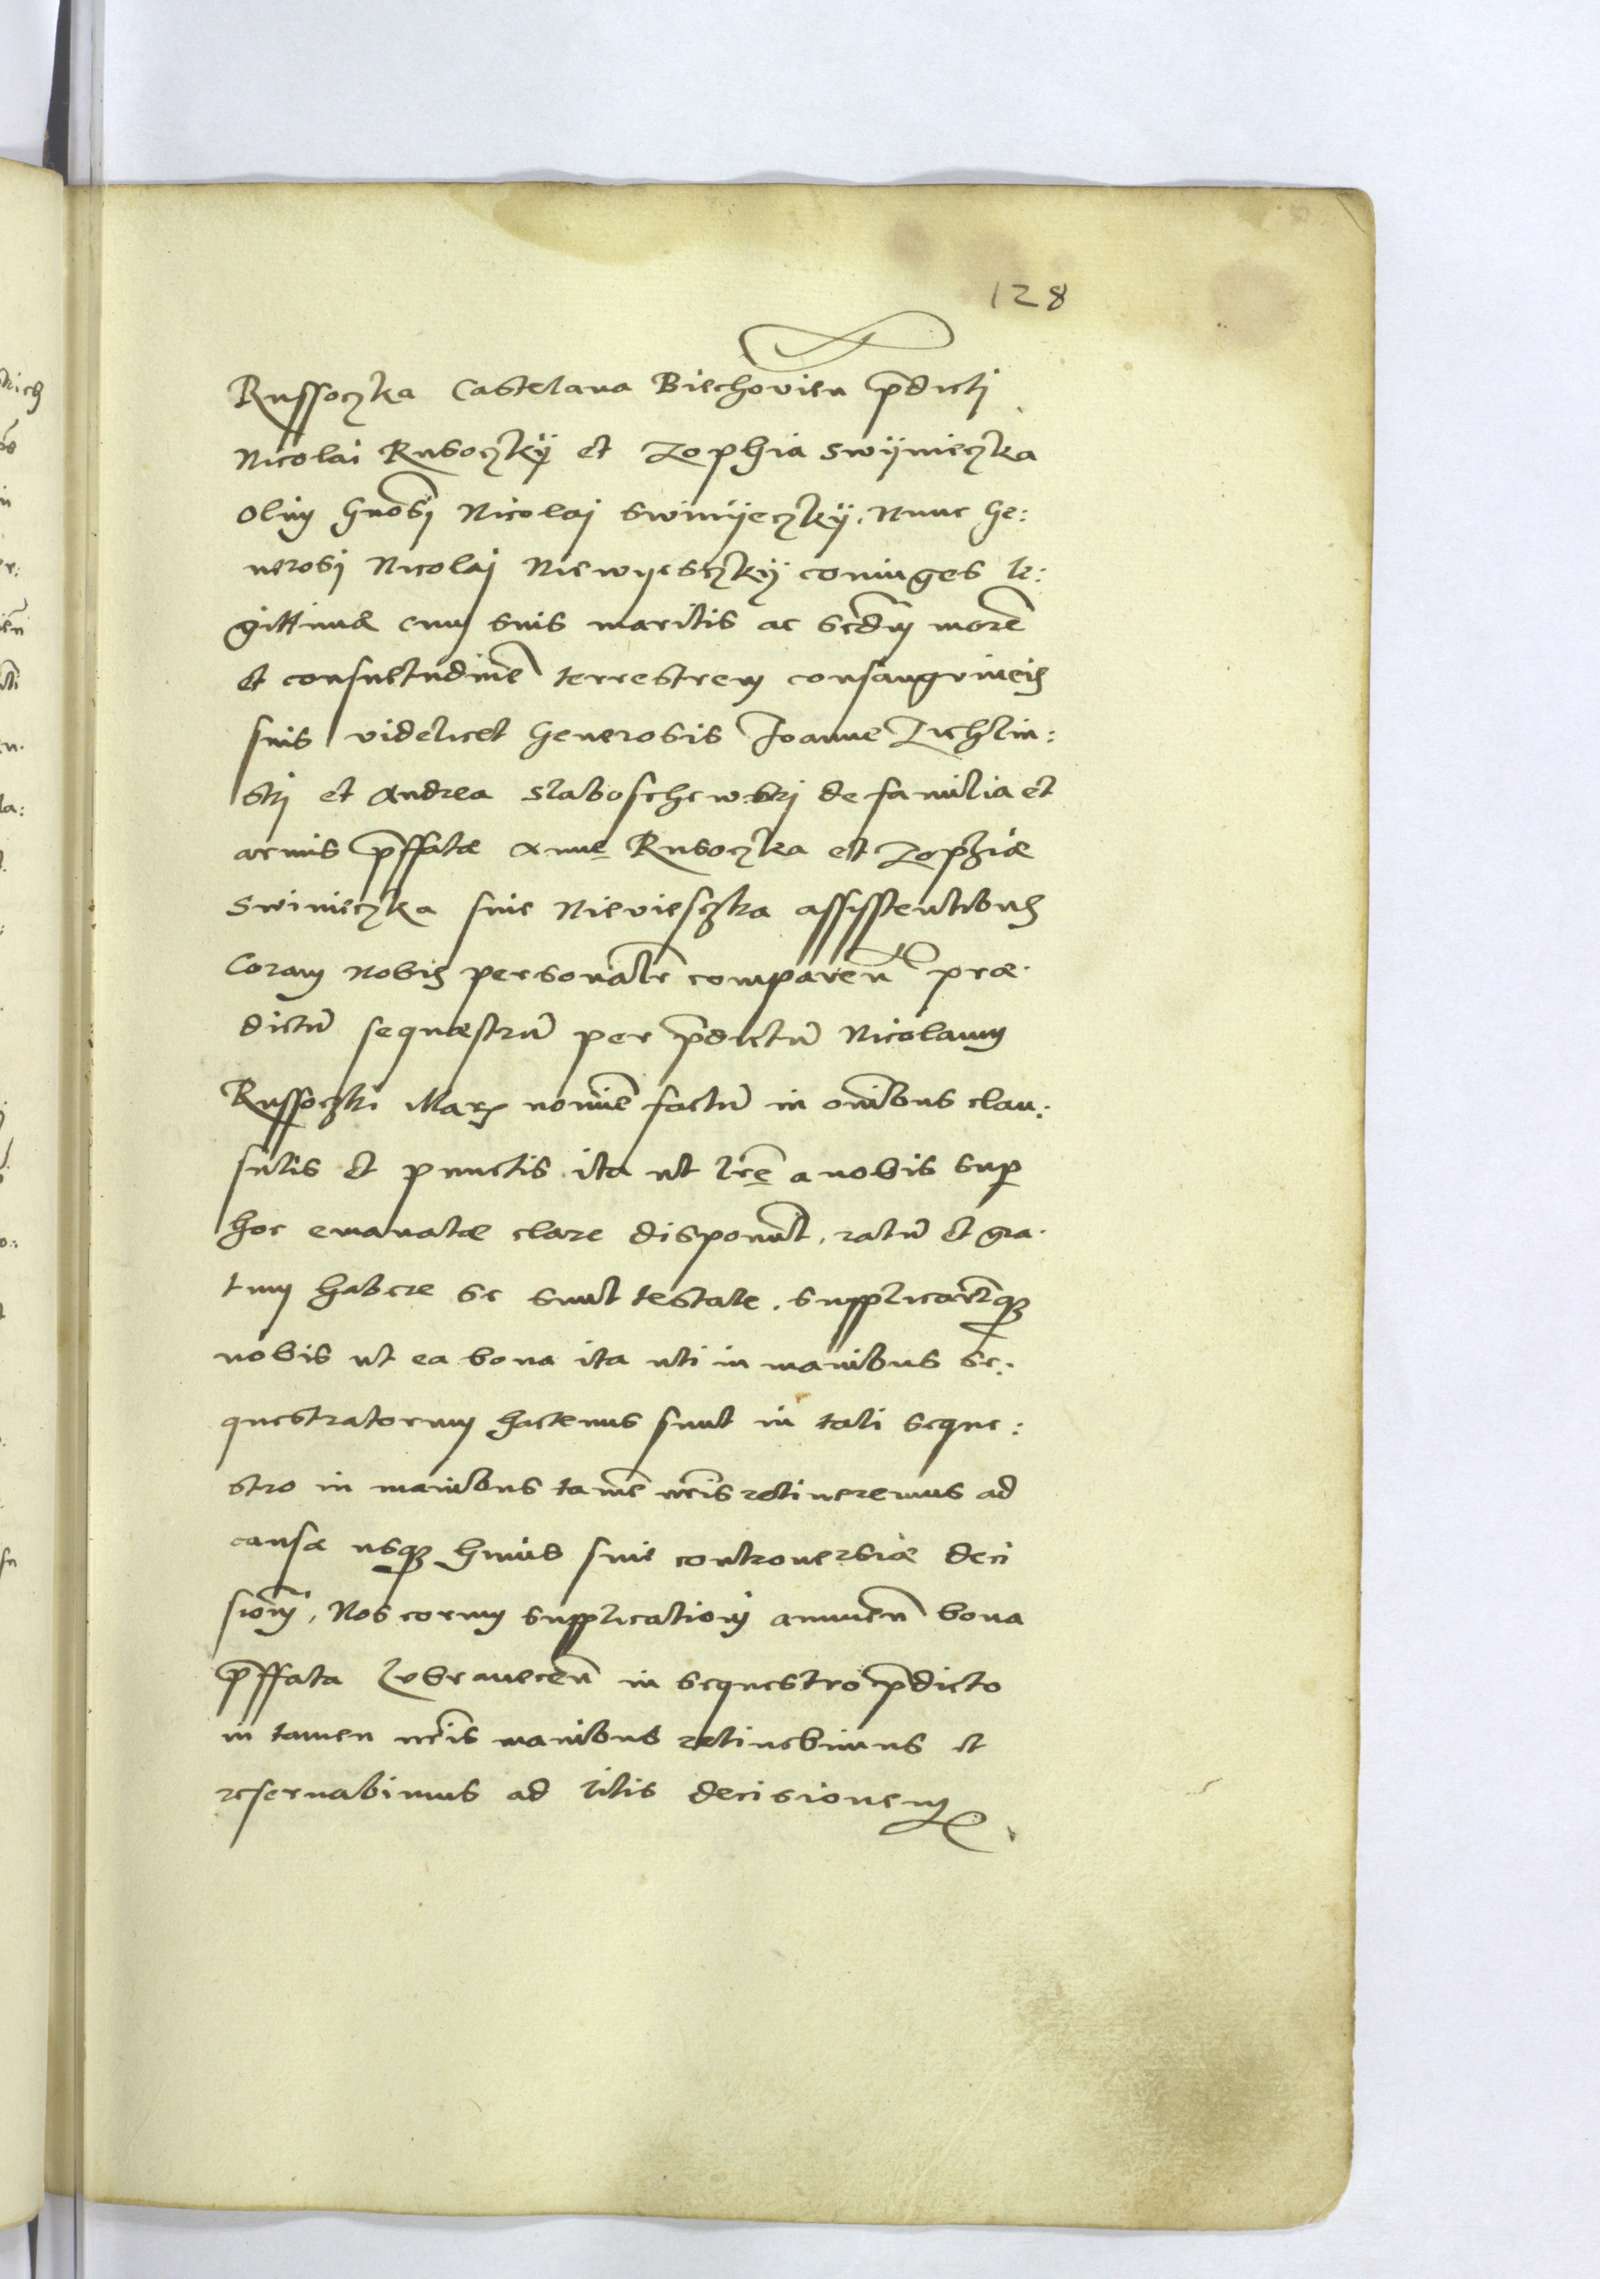 128
Russoczka Castelana Biechovien p̄dicti
Nicolai Rusoczkÿ et Zophia Swÿnieczka
olim Gnōsi Nicolaj Swinÿeczkÿ, nunc Ge:
nerosi Nicolaj Niewÿesczkÿ coniuges le:
gittimæ cum suis maritis ac scd̄m morē
et consuetudinē terrestrem consangvineis
suis videlicet Generosis Joanne Zichlin:
ski et Andrea Slaboschewski de familia et
armis p̄ffatæ Annę Rusoczka et Zophiæ
Swinieczka siue Nieviesczka assistentibus
Coram nobis personalr̄ comparen̄ præ
dictū sequæstrū per p̄dictū Nicolaum
Russoczki Mar nomīe factū in om̄ibus clau:
sulis et punctis ita ut lr̄ę a nobis sup
hoc emanatæ clare disponūt, ratū et gra
tum habere se sunt testate, supplicarūtq
nobis ut ea bona ita uti in manibus se:
questratorum hactenus sunt in tali seque:
stro in manibus tamē nr̄is retineremus ad
causæ usq huius siue controuersiæ deci
sionē, Nos eorum supplicationi annuen̄ bona
p̄ffata Lubranecen̄ in sequestro p̄dicto
in tamen nr̄is manibus retinebimus et
reseruabimus ad litis decisionem